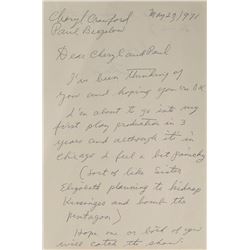 Cheryl Crawford May 29/1971
Paul Bigelow
Dear Cheryl and Paul
I've been thinking of
you and hoping you're OK
I'm about to go into my
first play production in 3
years and although it's in
chicago I feel a bit panicky
(sort of like Sister
Elizabeth planning to kidnap
Kissinger and bomb the
pentagon)
Hope one or both of you
will catch the show.